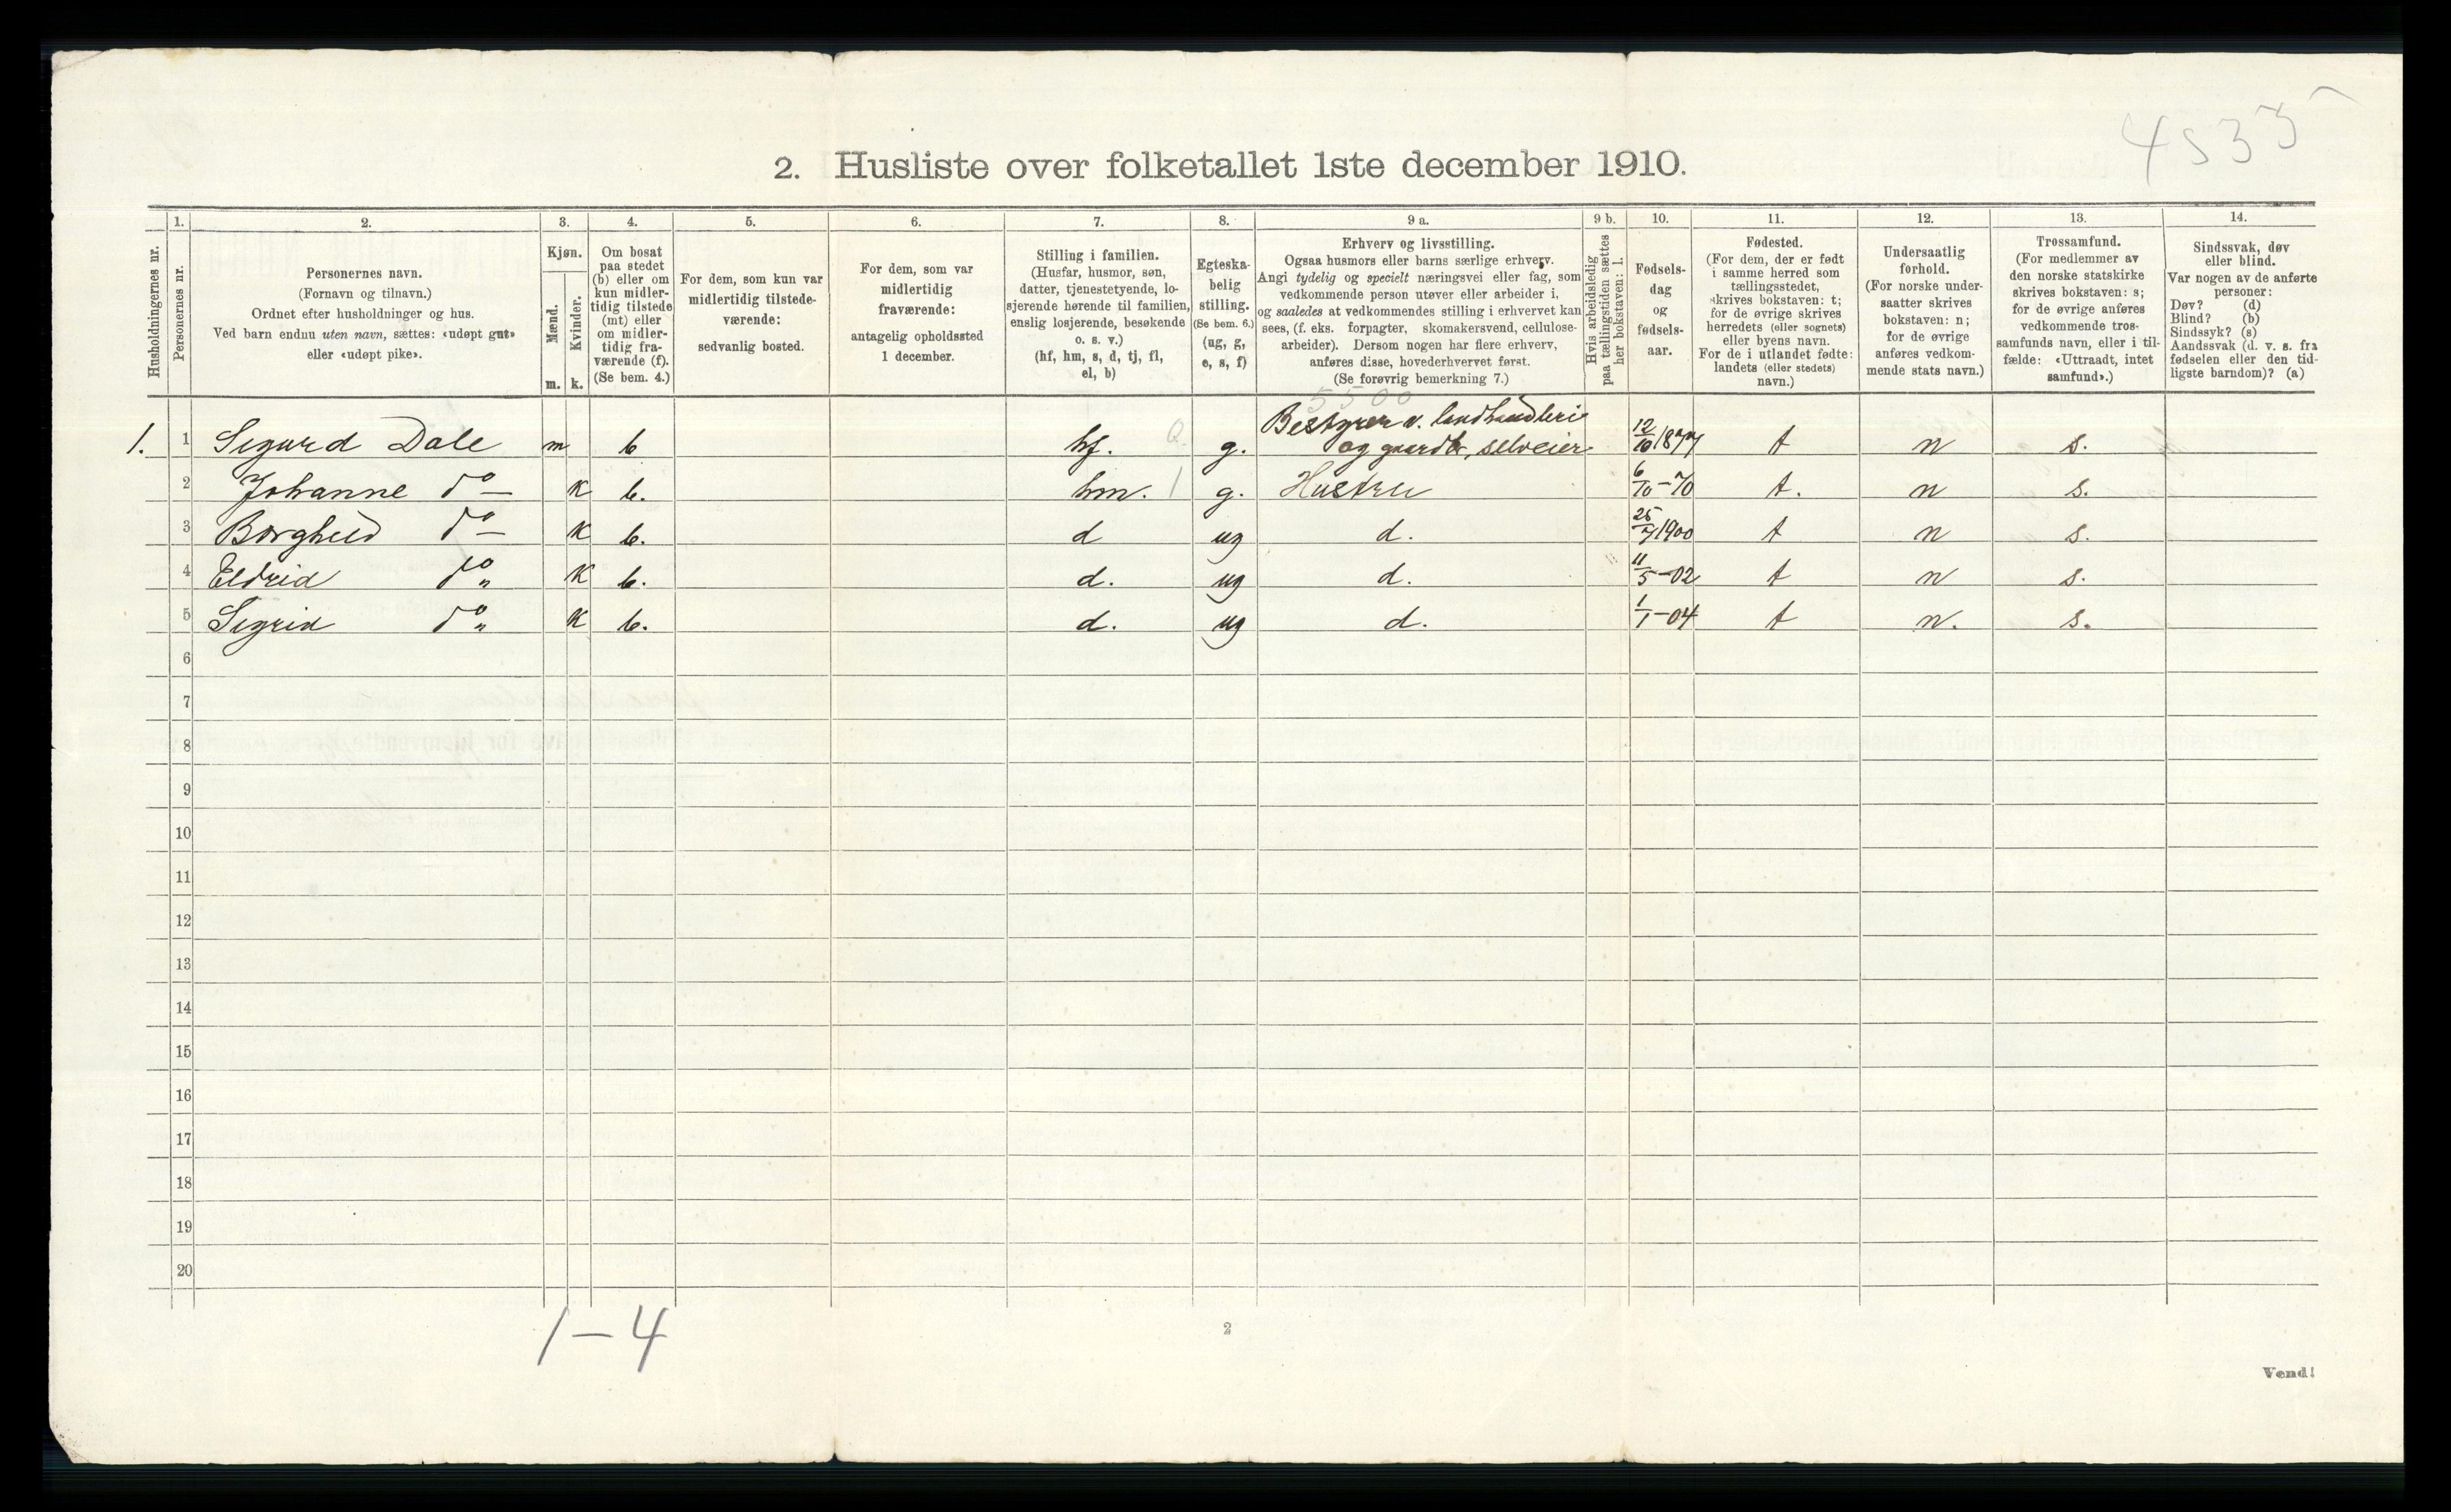 4535
2. Husliste over folketallet 1ste december 1910.
1. 2. 3. 4. 5. 6. 7. 8. 9 a. 9 b. 10. 11. 12. 13. 14.
Husholdningernes nr.
Personernes nr.
Personernes navn.
(Fornavn og tilnavn.)
Ordnet efter husholdninger og hus.
Ved barn endnu uten navn, sættes: «udøpt gut»
eller «udøpt pike».
Kjøn.
Mænd.
Kvinder.
m. k.
Om bosat
paa stedet
(b) eller om
kun midler-
tidig tilstede
(mt) eller
om midler-
tidig fra-
værende (f).
(Se bem. 4.)
For dem, som kun var
midlertidig tilstede-
værende:
sedvanlig bosted.
For dem, som var
midlertidig
fraværende:
antagelig opholdssted
1 december.
Stilling i familien.
(Husfar, husmor, søn,
datter, tjenestetyende, lo-
sjerende hørende til familien,
enslig losjerende, besøkende
o. s. v.)
(hf, hm, s, d, tj, fl,
el, b)
Egteska-
belig
stilling.
(Se bem. 6.)
(ug, g,
e, s, f)
Erhverv og livsstilling.
Ogsaa husmors eller barns særlige erhverv.
Angi tydelig og specielt næringsvei eller fag, som
vedkommende person utøver eller arbeider i,
og saaledes at vedkommendes stilling i erhvervet kan
sees, (f. eks. forpagter, skomakersvend, cellulose-
arbeider). Dersom nogen har flere erhverv,
anføres disse, hovederhvervet først.
(Se forøvrig bemerkning 7.)
Hvis arbeidsledig
paa tællingstiden sættes
her bokstaven: l.
Fødsels-
dag
og
fødsels-
aar.
Fødested.
(For dem, der er født
i samme herred som
tællingsstedet,
skrives bokstaven: t;
for de øvrige skrives
herredets (eller sognets)
eller byens navn.
For de i utlandet fødte:
landets (eller stedets)
navn.)
Undersaatlig
forhold.
(For norske under-
saatter skrives
bokstaven: n;
for de øvrige
anføres vedkom-
mende stats navn.)
Trossamfund.
(For medlemmer av
den norske statskirke
skrives bokstaven: s;
for de øvrige anføres
vedkommende tros-
samfunds navn, eller i til-
fælde: «Uttraadt, intet
samfund».)
Sindssvak, døv
eller blind.
Var nogen av de anførte
personer:
Døv? (d)
Blind? (b)
Sindssyk? (s)
Aandssvak (d. v. s. fra
fødselen eller den tid-
ligste barndom)? (a)
5500
Bestyrer v. landhandleri
1. 1 Sigurd Dale m b hf. 0 g. og gaardb, selveier 12/10 1877 t n s.
2 Johanne do — k b. hm. 1 g. Hustru 6/10 - 70 t. n s.
3 Borghild do — k b. d ug d. 25/7 1900 t n s.
4 Eldrid do " k b. d. ug d. 11/5 - 02 t n s.
5 Sigrid do " k b. d. ug d. 1/1 - 04 t n. s.
6
7
8
9
10
11
12
13
14
15
16
17
18
19
20
1 — 4
2
Vend!